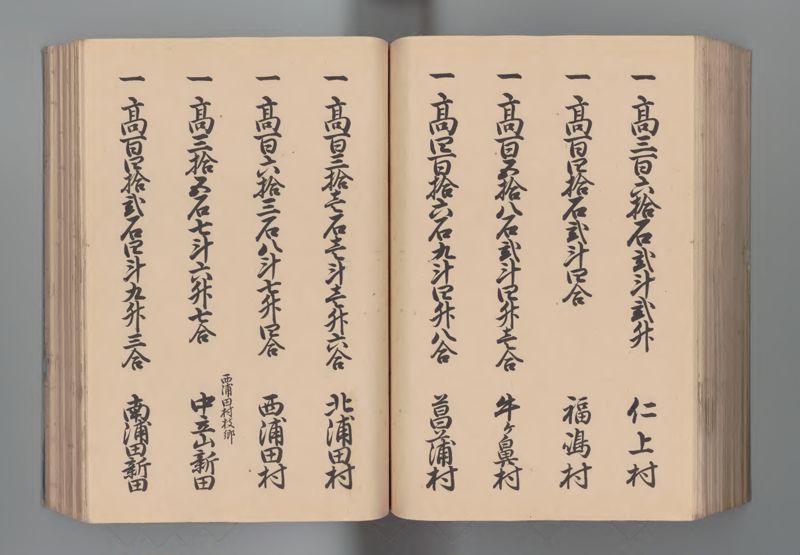 一 高三百六拾石弐斗弐升 仁上村
一 高百四拾石弐斗四合 福嶋村
一 高百五拾八石弐斗四升壱合 牛ヶ鼻村
一 高四百拾六石九斗四升八合 菖蒲村
一 高百三拾壱石壱斗壱升六合 北浦田村
一 高百六拾三石八斗七升四合 西浦田村
西浦田村枝郷
一 高三拾五石七斗六升七合 中立山新田
一 高百四拾弐石四斗九升三合 南浦田新田